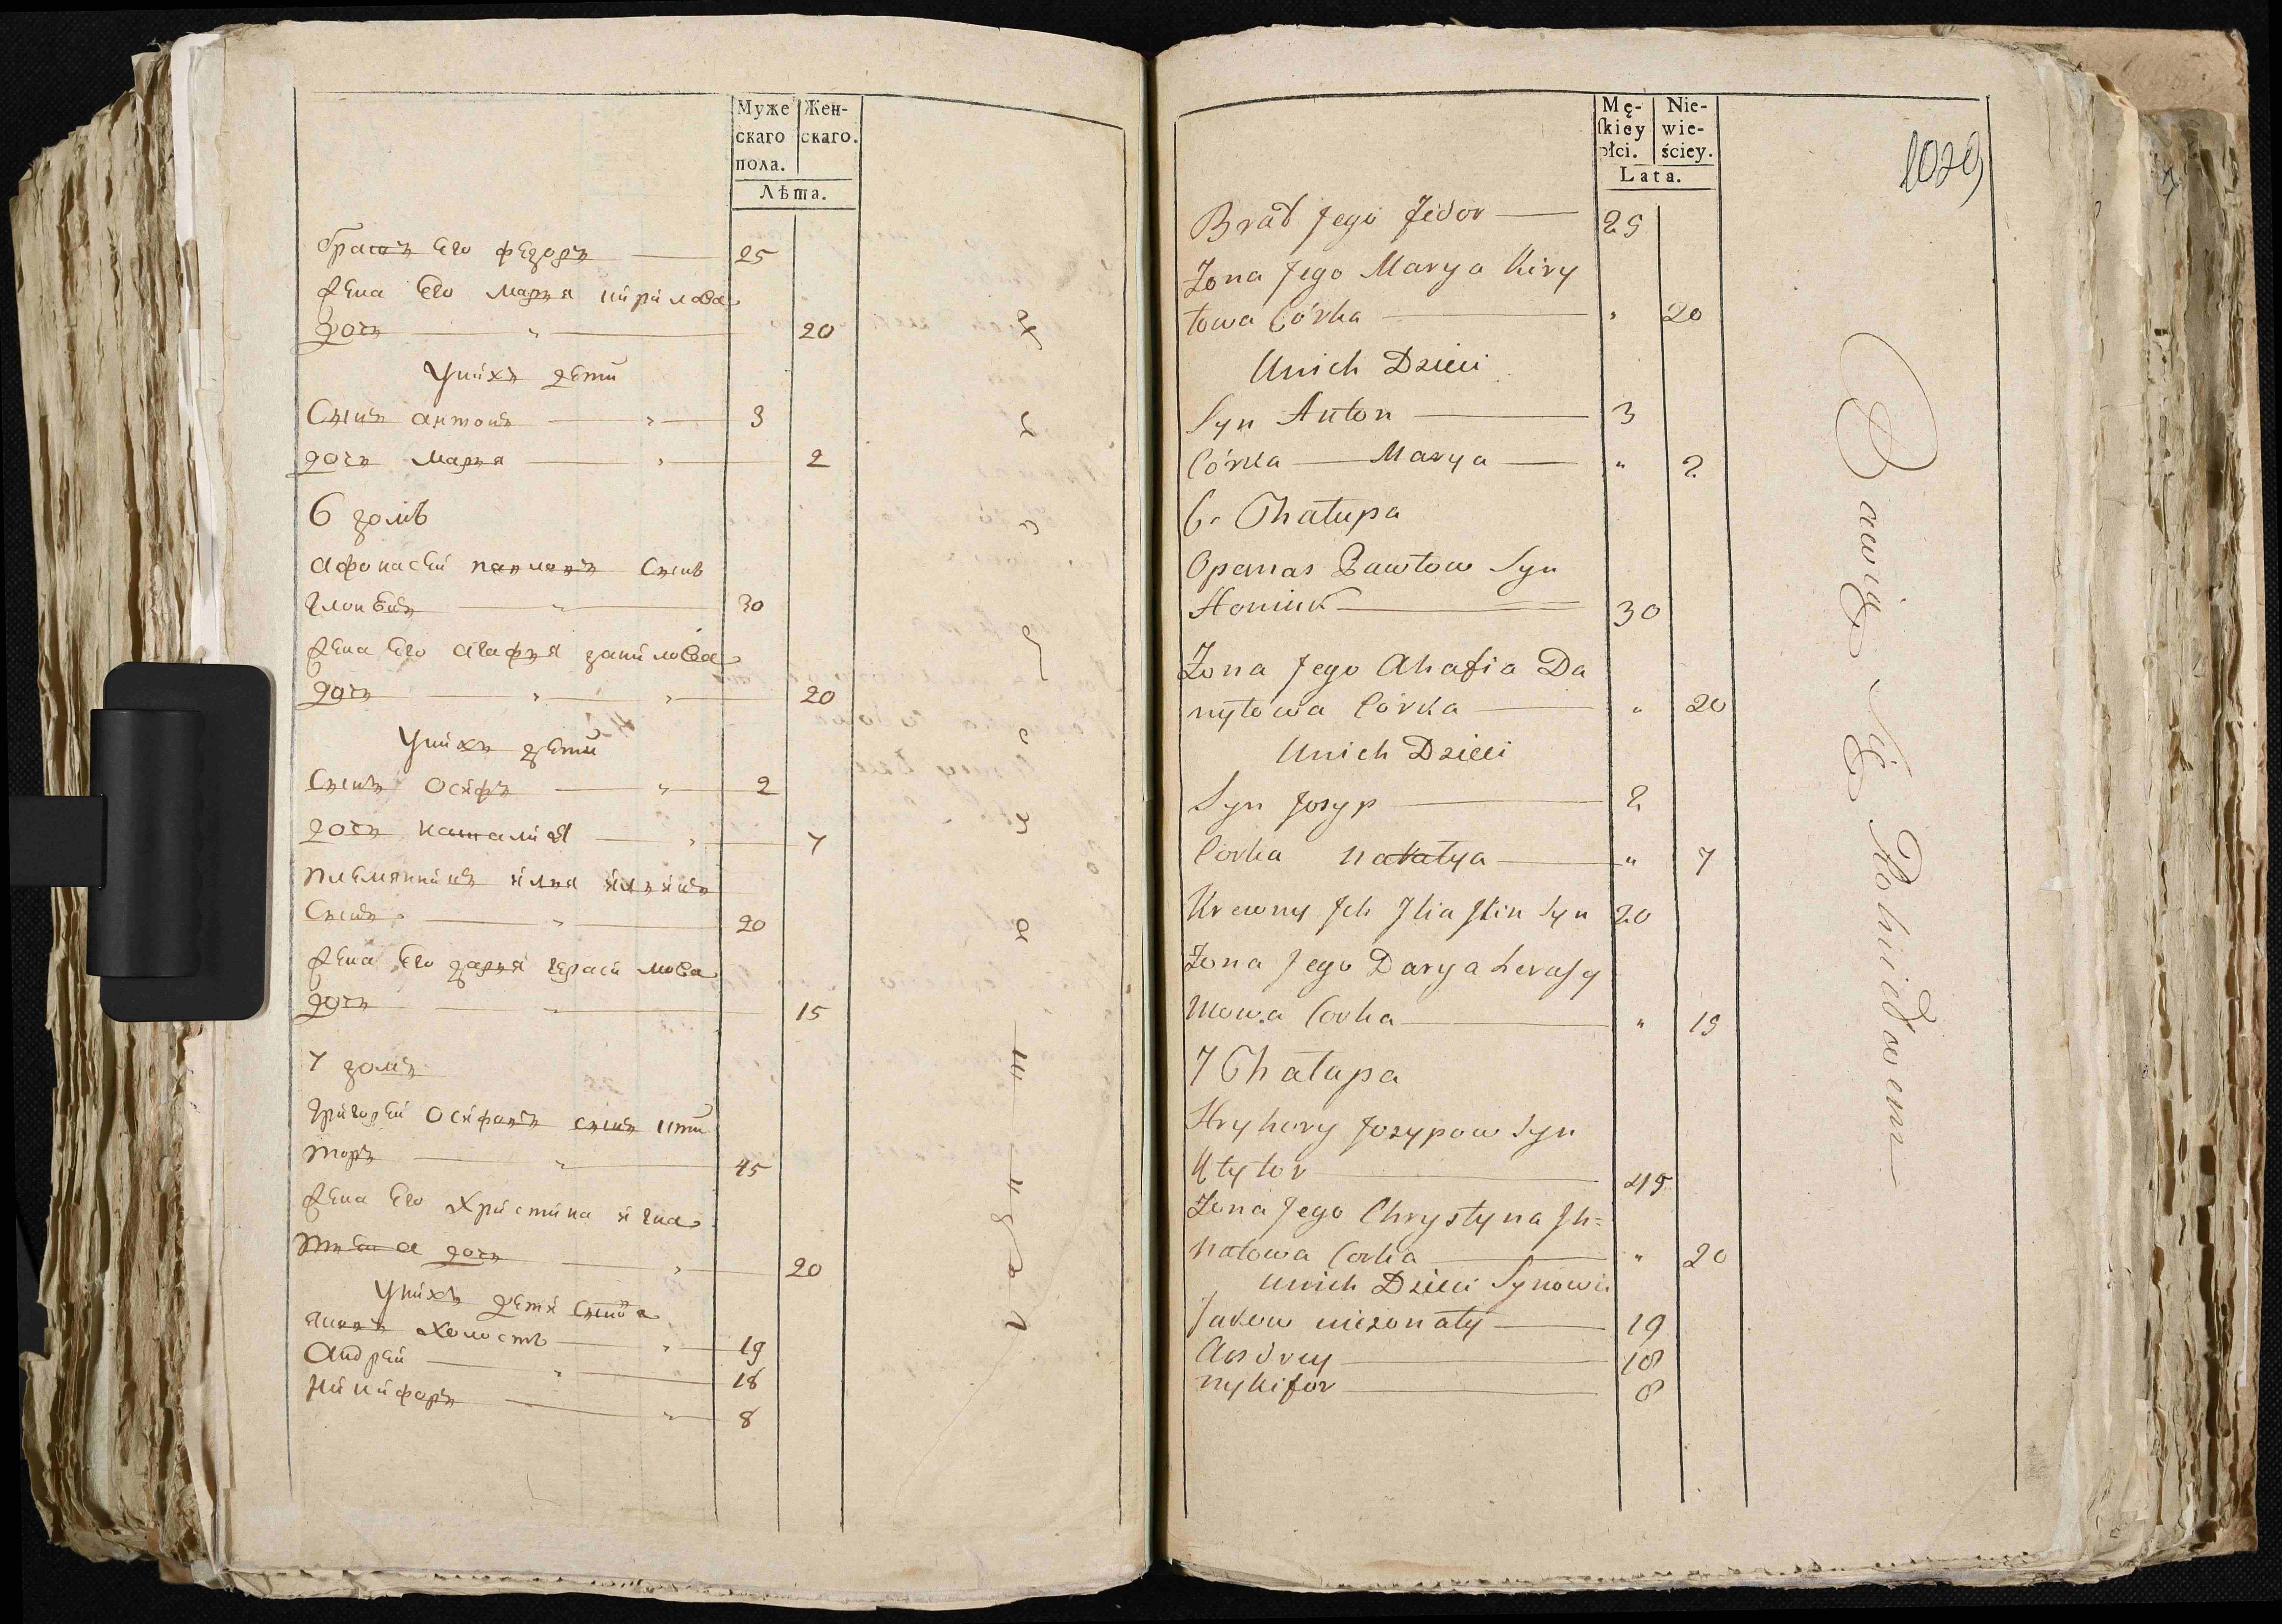 Муже
скаго
пола.
Жен-
скаго.
Лѣта.
братъ его федоръ 25
жена его марья кирилова
дочь " 20
у нихъ дети
Сынъ антонъ " 3
дочь марья " 2
6 домъ
афонасей павловъ сынъ
30
жена его агафья данилова
дочь " " 20
у нихъ дети
Сынъ осифъ " 2
дочь наталия " 7
племянникъ илья ильинъ
Сынъ " 20
жена его дарья герасимова
дочь " 15
7 домъ
григорей осифовъ сынъ кти
торъ " 45
жена его христина игна
дочь " 20
у нихъ дети
яковъ холостъ " 19
андрей " 18
никифоръ " 8
Mę-
skiey
płci.
Nie-
wie-
ściey.
Lata.
1029
Brat Jego Fedor 25
Zona Jego Marya Kiry
łowa Córka " 20
Unich Dzieci
Syn Anton 3
Córka Marya " 2
6. Chałupa
Opanas Pawłow Syn
30
Zona Jego Ahafia Da
nyłowa Córka " 20
Unich Dzieci
Syn Josyp 2
Corka natalya " 7
Krewny Ich Ilia Ilin Syn 20
Zona Jego Darya Herasy
mowa Corka " 15
7 Chałupa
Hryhory Josypow Syn
Ktytor 45
Zona Jego Chrystyna Ih=
natowa Corka " 20
Unich Dzieci Synowie
Jakow niezonaty 19
Andrey 18
nykifor 8
Bawią Się Rolnictwem